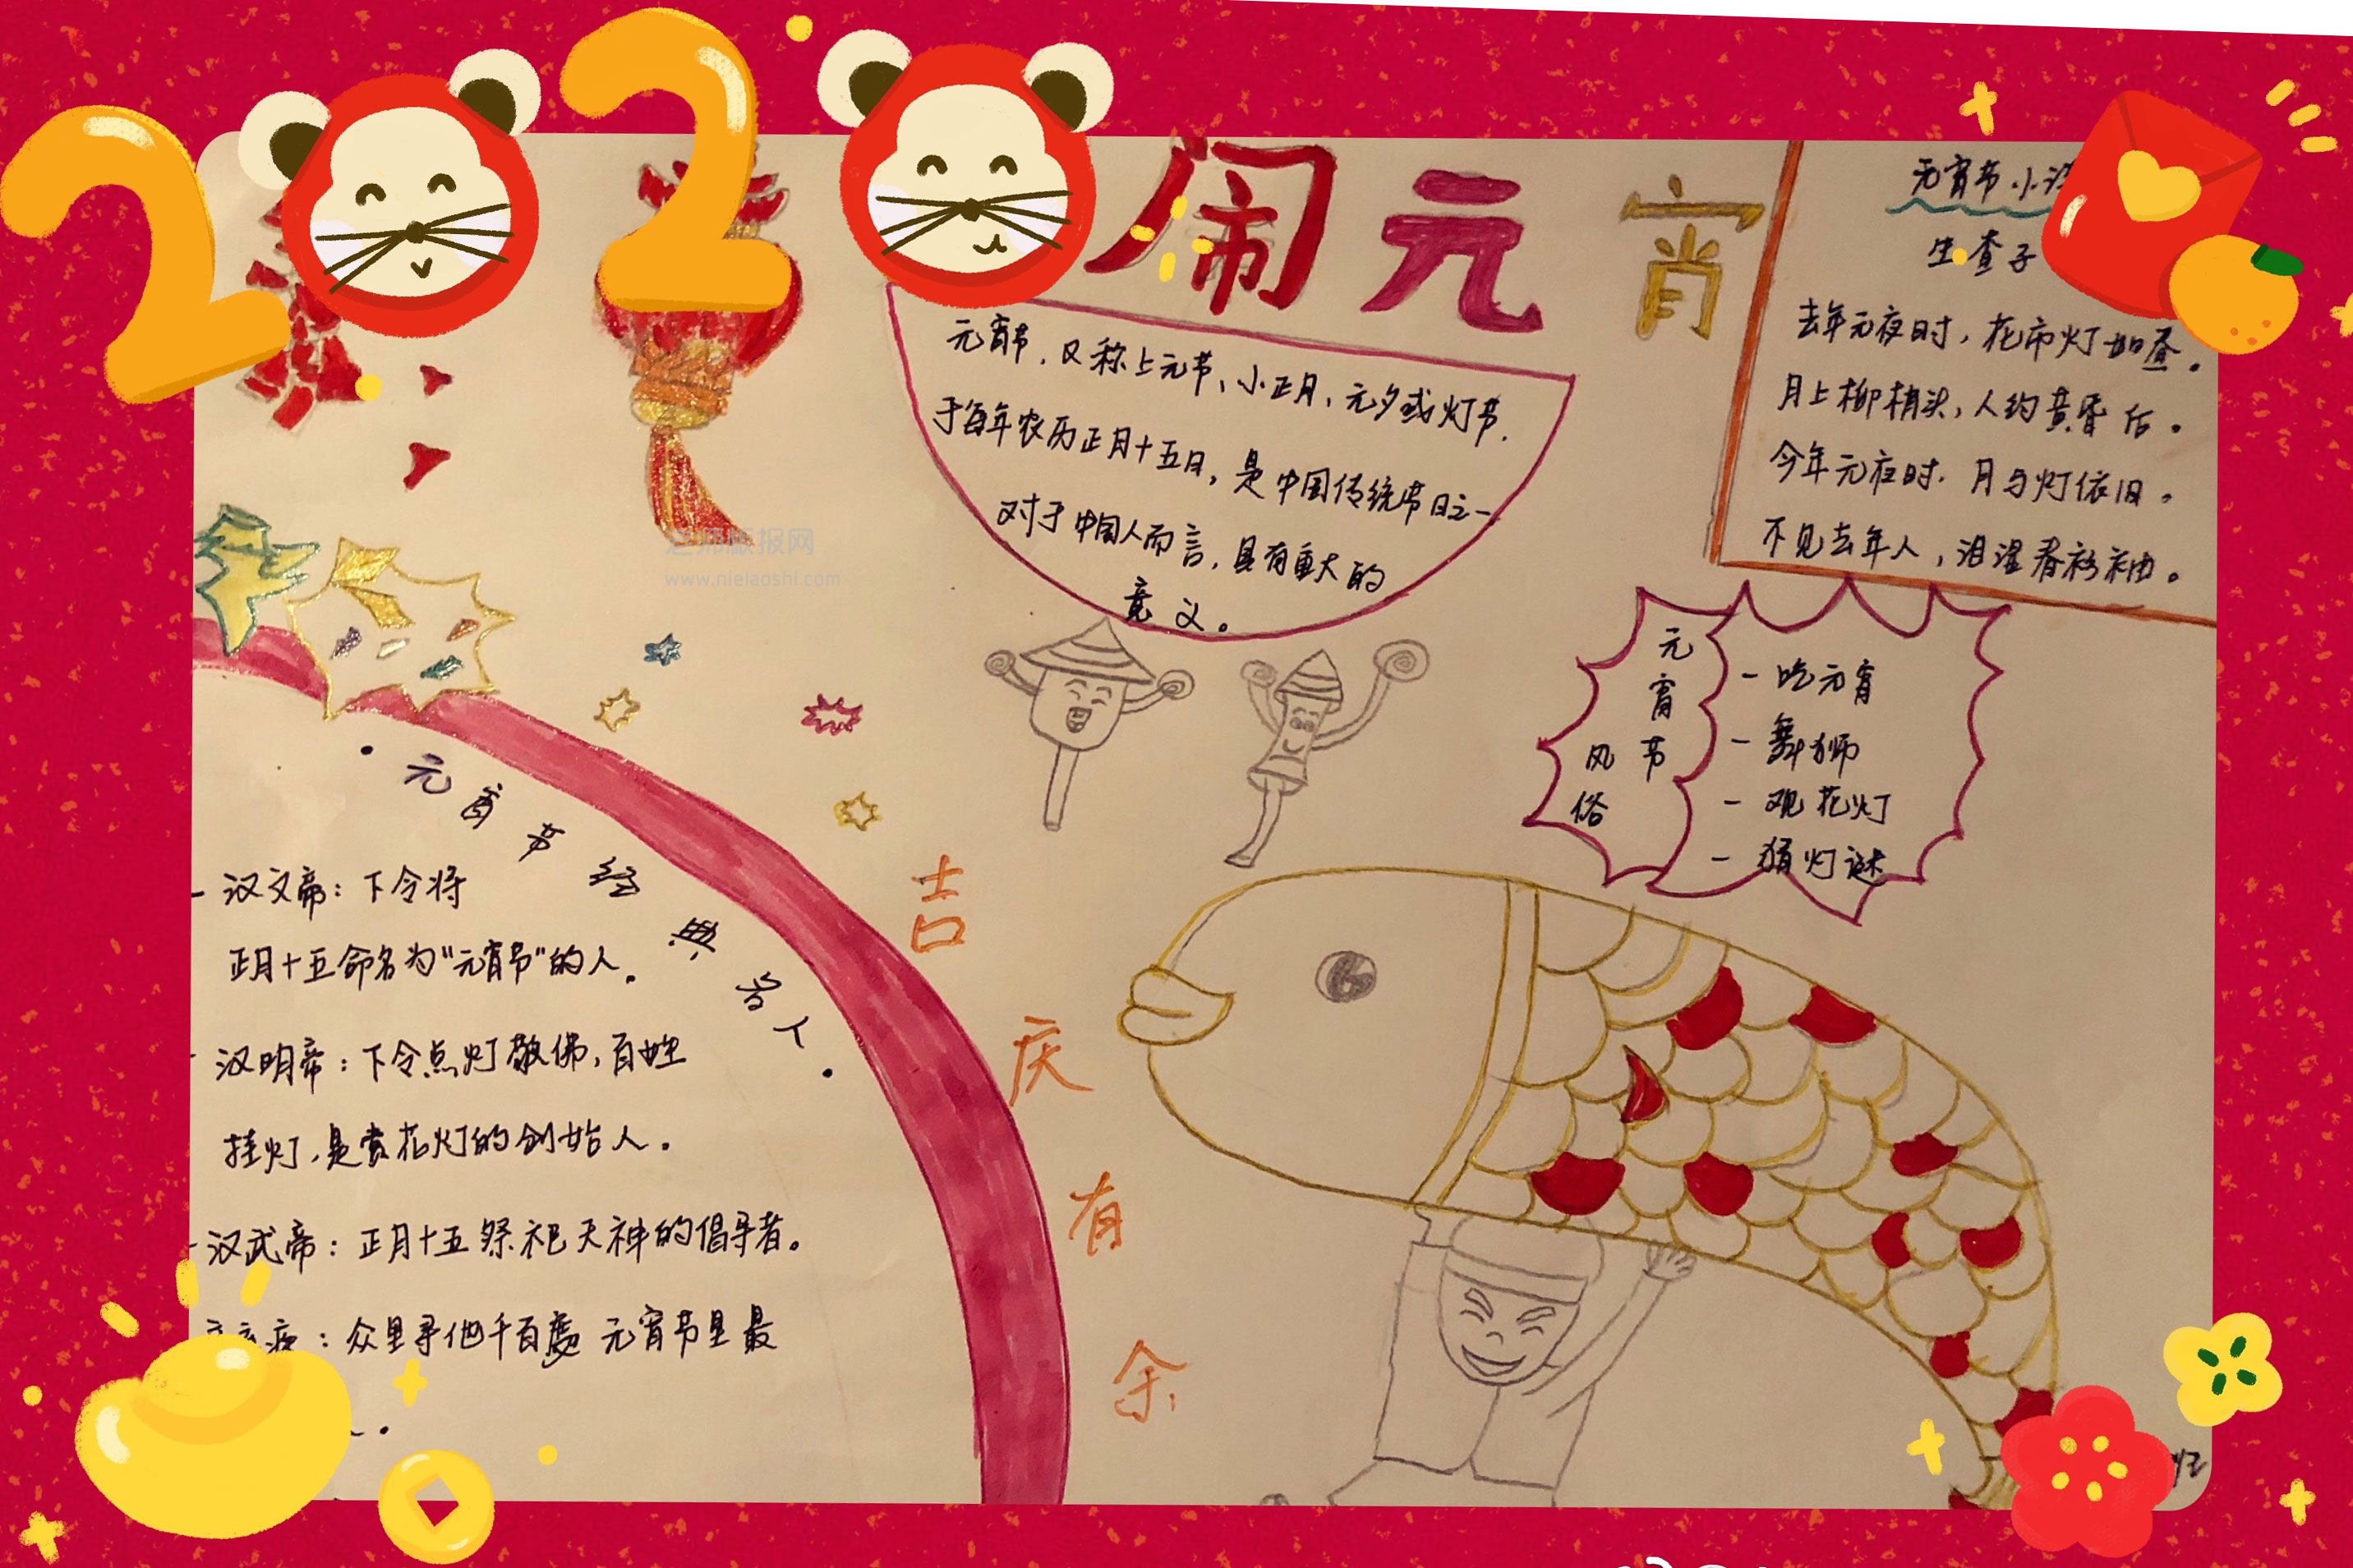 2020
闹元宵
元宵节，又称上元节、小正月、元夕或灯节，
于每年农历正月十五日，是中国传统节日之一
对于中国人而言，具有重大的
意义。
元宵节小
生查子
去年元夜时，花市灯如昼。
月上柳梢头，人约黄昏后。
今年元夜时，月与灯依旧。
不见去年人，泪湿春衫袖。
元宵节
风俗
- 吃元宵
- 舞狮
- 观花灯
- 猜灯谜
老师板报网
www.nielaoshi.com
·元宵节经典名人·
- 汉文帝：下令将
正月十五命名为“元宵节”的人。
- 汉明帝：下令点灯敬佛，百姓
挂灯，是赏花灯的创始人。
- 汉武帝：正月十五祭祀天神的倡导者。
：众里寻他千百度 元宵节里最
吉庆有余